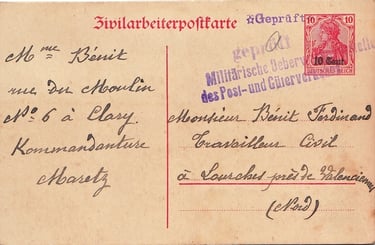 Zivilarbeiterpostkarte
Geprüft
geprüft
Militärische Ueberw
des Post- und Güterver
10 10
10 Cent.
DEUTSCHES REICH
Mme Bénit
rue du Moulin
No 6 à Clary
Kommandanture
Maretz
Monsieur Bénit Ferdinand
Travailleur Civil
à Lourches près de Valenciennes
(Nord)